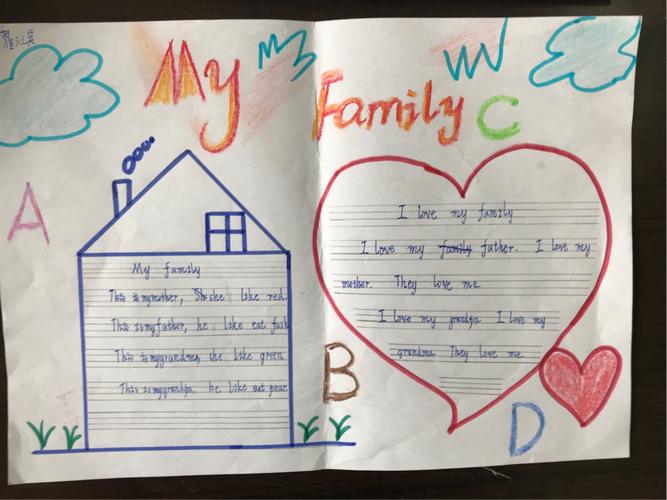 My Family
C
A
My family
This is my mother, She she like red.
This is my father, he like eat fish
This is my grandma, she like green.
This is my grandpa, he like eat pear.
I love my family
I love my family father. I love my
mother. They love me.
I love my grandpa I love my
grandma They love me
B
D